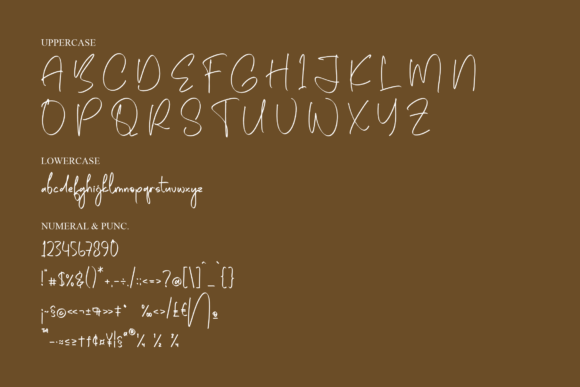 UPPERCASE
A B C D E F G H I J K L M N
O P Q R S T U V W X Y Z
LOWERCASE
abcdefghijklmnopqrstuvwxyz
NUMERAL & PUNC.
1234567890
!"#$%&()*+,-÷./:;<=>?@[\]^_`{}
¡~§©«¬±¶»‡' ‰<>/£€
™–·≈≤≥†ƒ¢¤¥|§ªº®¼ ½ ¾